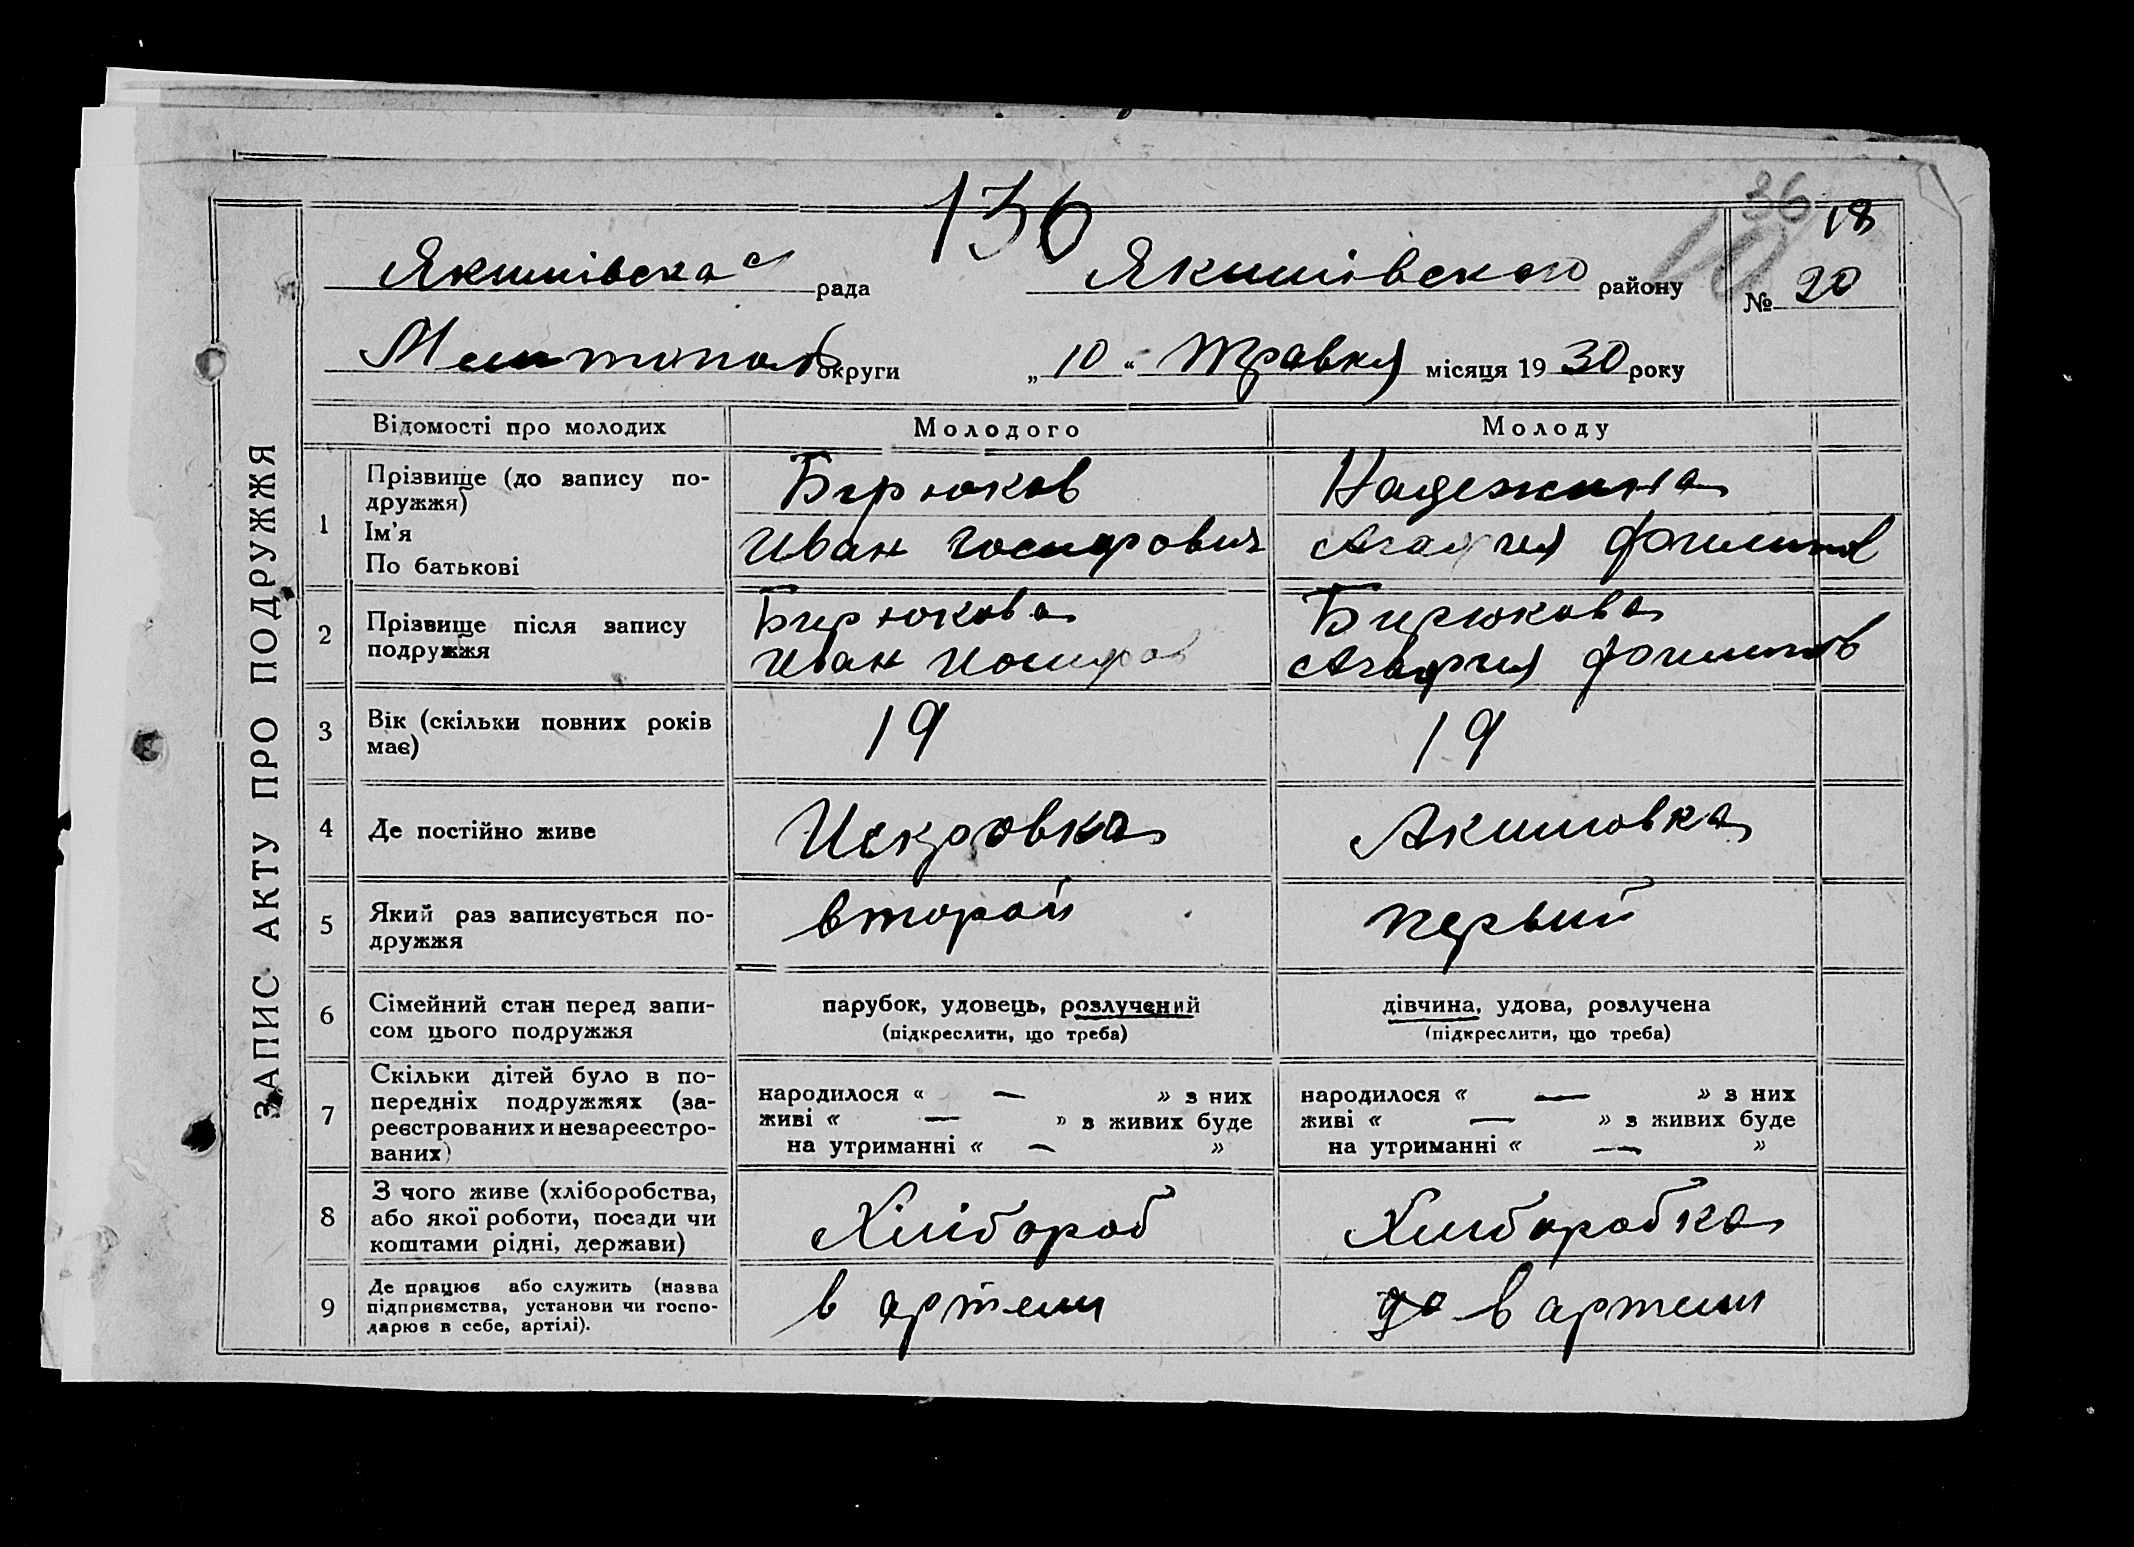 136
36
18
Якимівська рада Якимівського району № 20
Мелитопол округи „10“ Травня місяця 1930 року
ЗАПИС АКТУ ПРО ПОДРУЖЖЯ
Відомості про молодих Молодого Молоду
1 Прізвище (до запису по-
дружжя)
Ім'я
По батькові
Бирюков
Иван Иосифович
Надежина
Агафия Филипов
2 Прізвище після запису
подружжя
Бирюкова
Иван Иосифов
Бирюкова
Агафия Филипов
3 Вік (скільки повних років
має)
19
19
4 Де постійно живе Искровка Акимовка
5 Який раз записується по-
дружжя
второй
первый
6 Сімейний стан перед запи-
сом цього подружжя
парубок, удовець, розлучений
(підкреслити, що треба)
дівчина, удова, розлучена
(підкреслити, що треба)
7 Скільки дітей було в по-
передніх подружжях (за-
реєстрованих и незареєстро-
ваних)
народилося « — » з них
живі « — » з живих буде
на утриманні « — »
народилося « — » з них
живі « — » з живих буде
на утриманні « — »
8 З чого живе (хліборобства,
або якої роботи, посади чи
коштами рідні, держави)
Хлібороб
Хлиборобка
9 Де працює або служить (назва
підприємства, установи чи госпо-
дарює в себе, артілі).
в артели
в артели